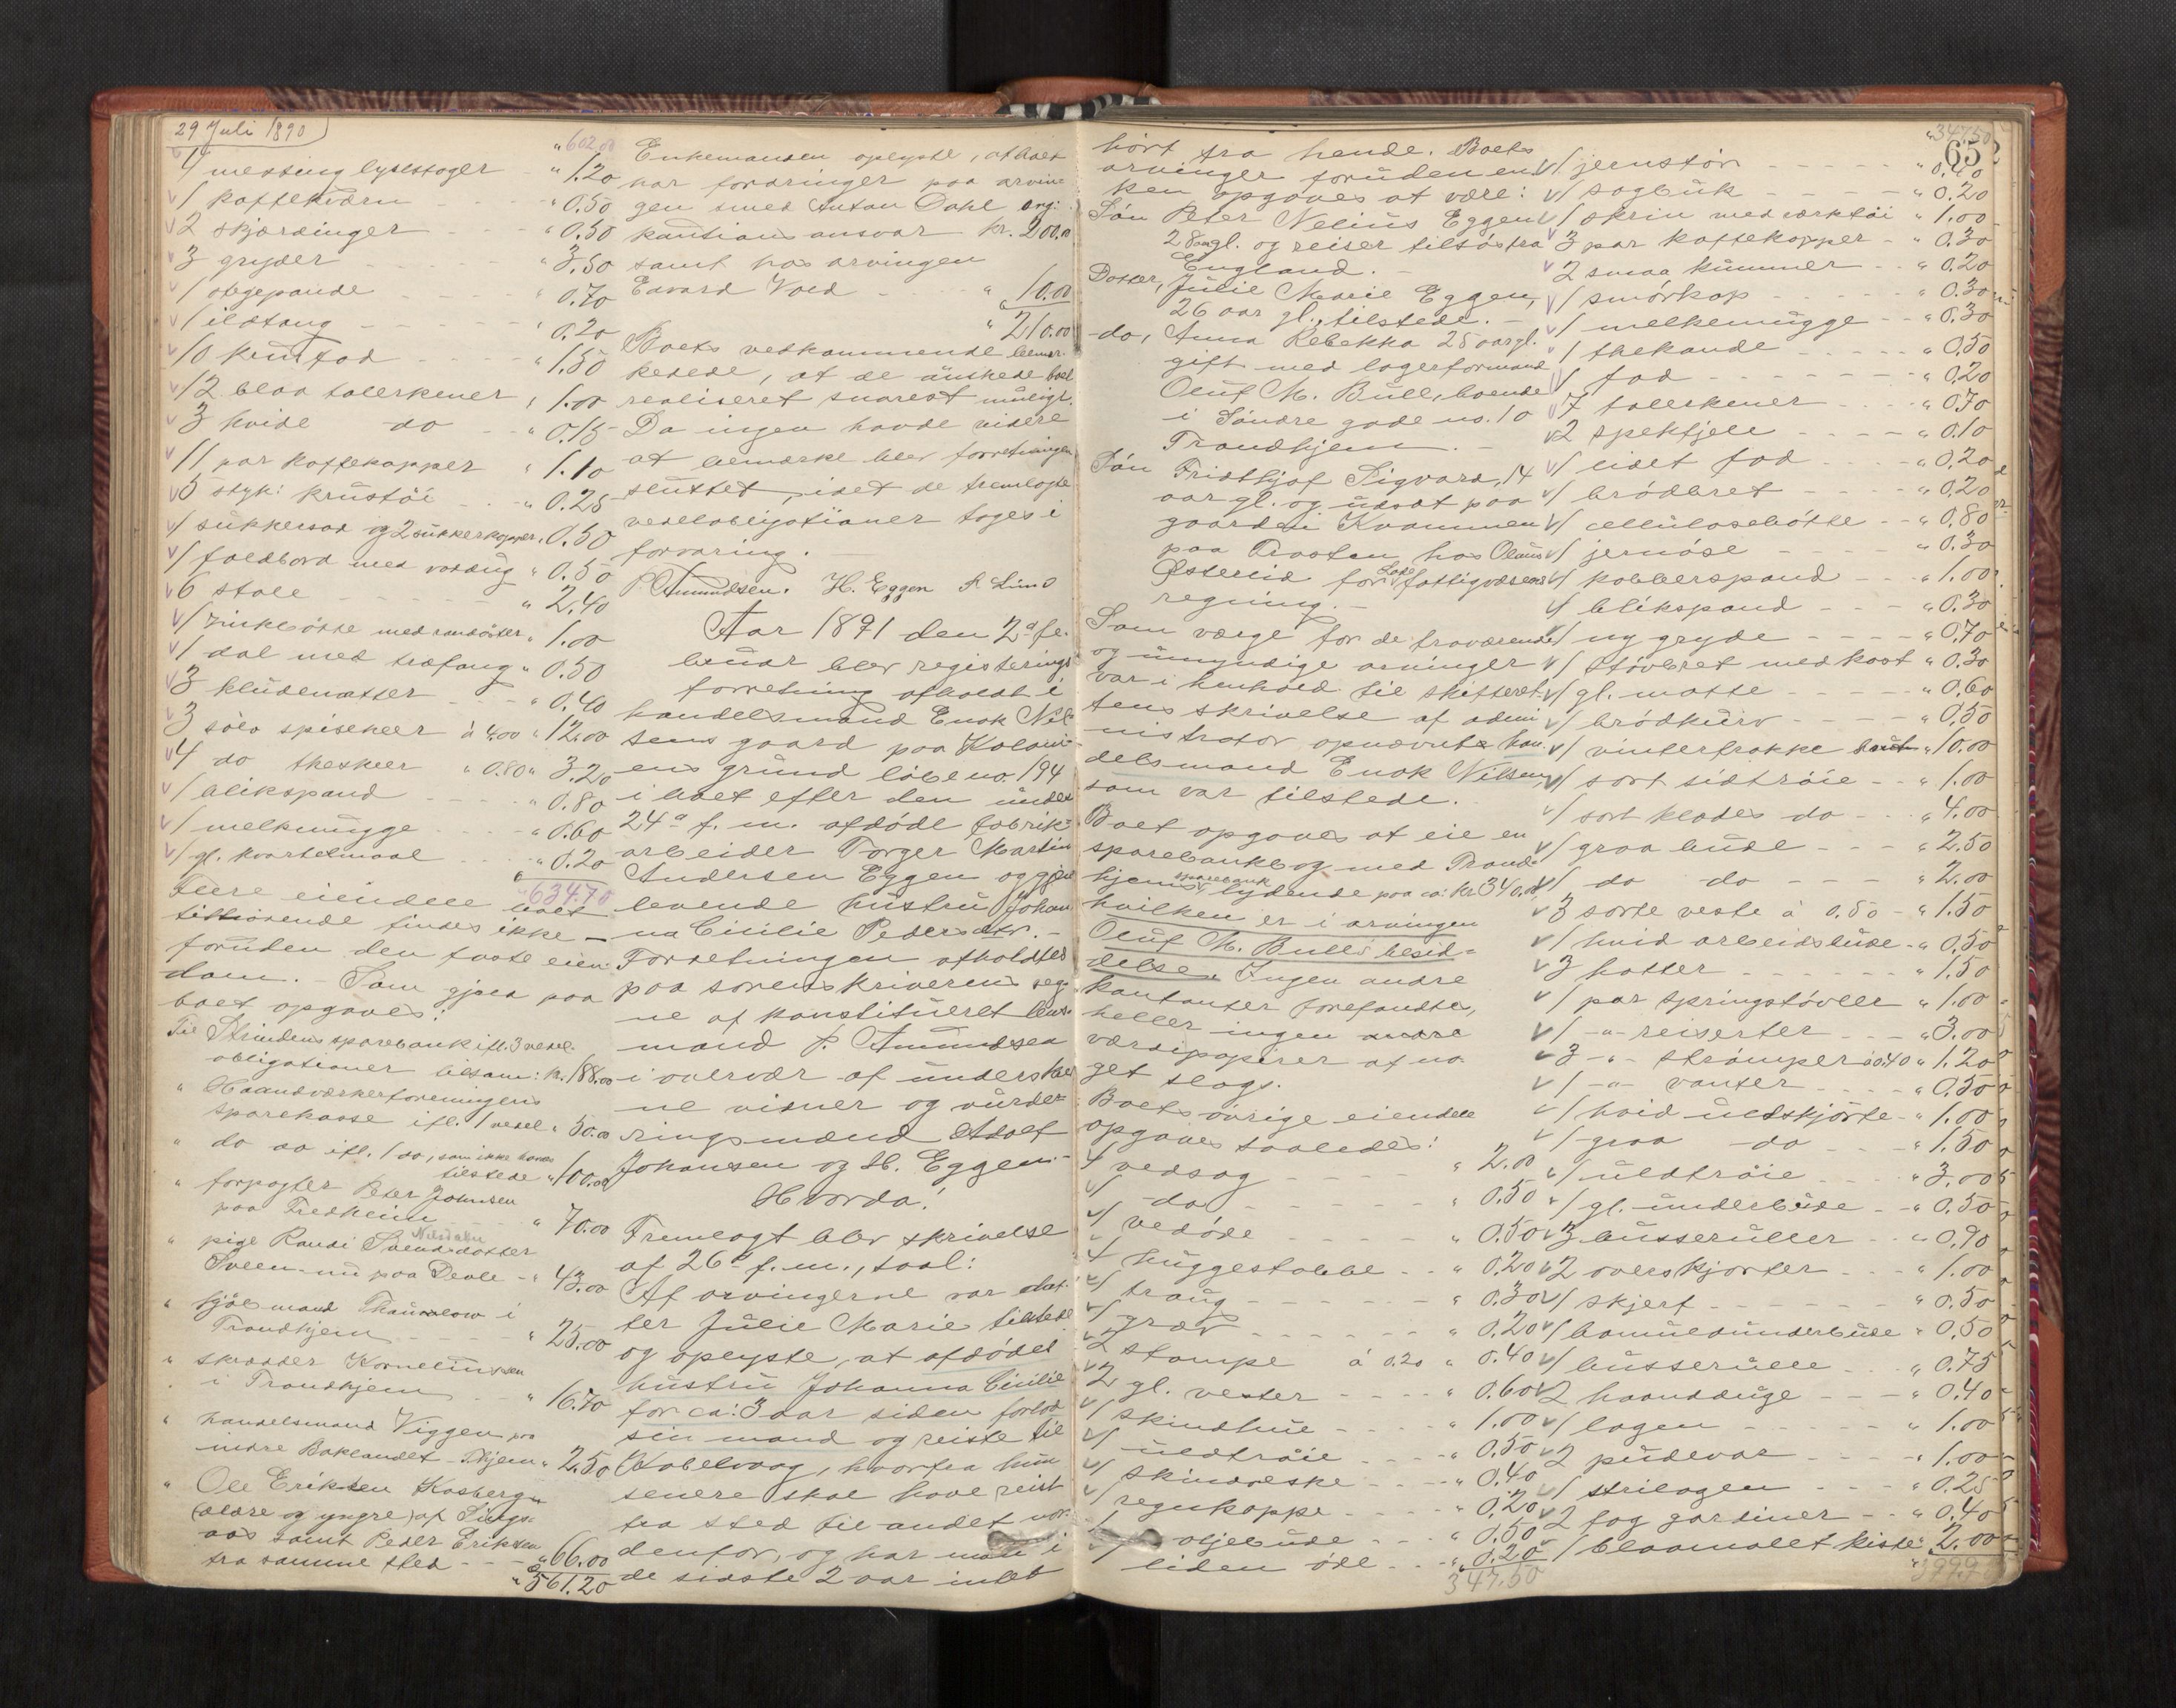 29 Juli 1890
" 602.00
4 messing lysestager " 1.20
1 kaffekværn " 0.50
2 skjæringer " 0.50
3 gryder " 3.50
1 stegepande " 0.70
1 ildtang " 0.20
10 fad " 1.50
12 blaa tallerkener " 1.00
3 hvide do " 0.15
11 par kaffekopper " 1.10
5 styk: krustöi " 0.25
1 sukkersax og 2 sukkerkopper " 0.50
1 foldbord med voxdug " 0.50
6 stole " 2.40
1 zinkbötte med " 1.00
1 dal med træfang " 0.50
3 kludematter " 0.40
3 sölv spiseskeer á 4.00 " 12.00
4 do theskeer " 0.80 " 3.20
1 blikspand " 0.80
1 melkemugge " 0.60
1 gl. kvartelmaal " 0.20
" 634.70
Flere eiendele boet
tilhörende findes ikke —
foruden den faste eien-
dom. - Som gjæld paa
boet opgaves:
Til Strindens sparebank ifl. 3 vexel-
obligationer tilsam: kr. 188.00
" Haandværkerforeningens
sparekasse ifl. 1 vexel " 50.00
" do do ifl. 1 do, som ikke haves
tilstede " 100.00
" forpagter Peter Johnsen
paa Fredheim " 70.00
" pige Randi Svendsdatter
Sveen nu paa Devle " 43.00
" fjölmand Thaulow i
Trondhjem " 25.00
" skrædder Korneliussen
i Trondhjem " 16.70
" handelsmand Viggen paa
indre Baklandet Thjem " 2.50
" Ole Eriksen Kosberg
(ældre og yngre) af Sings-
aas samt Peder Eriksen
fra samme sted " 66.00
" 561.20
Enkemanden oplyste, at boet
har fordringer paa arvin-
gen smed Anton Dahl ang:
kautionsansvar kr. 200.00
samt hos arvingen
Edvard Vold " 10.00
" 210.00
Boets vedkommende bemær-
kede, at de önskede boet
realiseret snarest muligt.
Da ingen havde videre
at bemærke blev forretningen
sluttet, idet de fremlagte
vexelobligationer toges i
forvaring.
P. Amundsen. H. Eggen A Lund
Aar 1891 den 2d fe-
bruar blev registrerings-
forretning afholdt i
handelsmand Enok Nil-
sens gaard paa Koloni-
ens grund löbe no. 194
i boet efter den under
24d f. m. afdöde fabrik-
arbeider Torger Martin
Andersen Eggen og gjen-
levende hustru Johan-
na Cicilie Pedersdtr. —
Forretningen afholdtes
paa sorenskriverens veg-
ne af konstitueret lens-
mand P. Amundsen
i overvær af underskrev-
ne vidner og vurder-
ingsmænd Adolf
Johansen og H. Eggen —
Hvorda!
Fremlagt blev skrivelse
af 26d f. m., saal:
Af arvingerne var dat-
ter Julie Marie tilstede
og oplyste, at afdödes
hustru Johanna Cicilie
for ca: 3 aar siden forlod
sin mand og reiste til
Kabelvaag, hvorfra hun
senere skal have reist
fra sted til andet nor-
denfor, og har man i
de sidste 2 aar intet
652
hört fra hende. Boets
arvinger foruden en-
ken opgaves at være:
Sön Peter Nelius Eggen
28 aar gl. og reiser tilsös fra
England. -
Dotter, Julie Marie Eggen,
26 aar gl., tilstede. -
do, Anna Rebekka 25 aar gl.
gift med lagerformand
Oluf M. Bull, boende
i Söndre gade no. 10
Trondhjem. -
Sön Fridthjof Sigvard, 14
aar gl. og udsat paa
gaarden Kvammen
paa Frosten hos Olaus
Östereid for Lade fattigvæsens
regning. -
Som værge for de fraværende
og umyndige arvinger
var i henhold til skifteret-
tens skrivelse af admi-
nistrator opnævnt han-
delsmand Enok Nilsen,
som var tilstede.
Boet opgaves at eie en
sparebankbog med Trond-
hjems sparebank lydende paa ca: kr. 340.00
hvilken er i arvingen
Oluf M. Bulls besid-
delse. Ingen andre
kontanter forefandtes,
heller ingen andre
værdipapirer af no-
get slags.
Boets övrige eiendele
opgaves saaledes:
1 vedsag " 2.00
1 do " 0.50
1 vedöxe " 0.50
1 huggestabbe " 0.20
1 traug " 0.30
1 græv " 0.20
2 stampe á 0.20 " 0.40
2 gl. vester " 0.60
1 skindhue " 1.00
1 uldtröie " 0.50
1 skindveske " 0.40
1 regnkappe " 0.20
1 oljebuxe " 0.50
1 liden öxe " 0.20
347.50
" 347.50
1 jernstör " 0.40
1 sagbuk " 0.20
1 skrin med værktöi " 1.00
3 par kaffekopper " 0.30
2 smaa kummer " 0.20
1 smörkop " 0.30
1 melkemugge " 0.30
1 thekande " 0.50
1 fad " 0.20
7 tallerkener " 0.70
2 spekfjele " 0.10
1 lidet fad " 0.20
1 brödbret " 0.20
1 cellulosebötte " 0.80
1 jernöse " 0.30
1 kobberspand " 1.00
1 blikspand " 0.30
1 ny gryde " 0.70
1 stövbret med kost " 0.30
1 gl. matte " 0.60
1 brödkurv " 0.50
1 vinterfrakke " 10.00
1 sort sidtröie " 1.00
1 sort klædes do " 4.00
1 graa buxe " 2.50
1 do do " 2.00
3 sorte veste á 0.50 " 1.50
1 hvid arbeidsbuxe " 0.50
3 hatter " 1.50
1 par springstövler " 1.00
1 -"- reiserter " 3.00
3 -"- strömper á 0.40 " 1.20
1 -"- vanter " 0.50
1 hvid uldskjörte " 1.00
1 graa do " 1.50
1 uldtröie " 3.00
1 gl. underbuxe " 0.50
3 busseruller " 0.90
2 overskjorter " 1.00
1 skjerf " 0.50
1 bomuldsunderbuxe " 0.50
1 busserulle " 0.75
2 haandduge " 0.40
1 lagen " 1.00
2 pudevar " 1.00
1 strilagen " 0.25
2 fag gardiner " 0.40
1 blaamalet kiste " 2.00